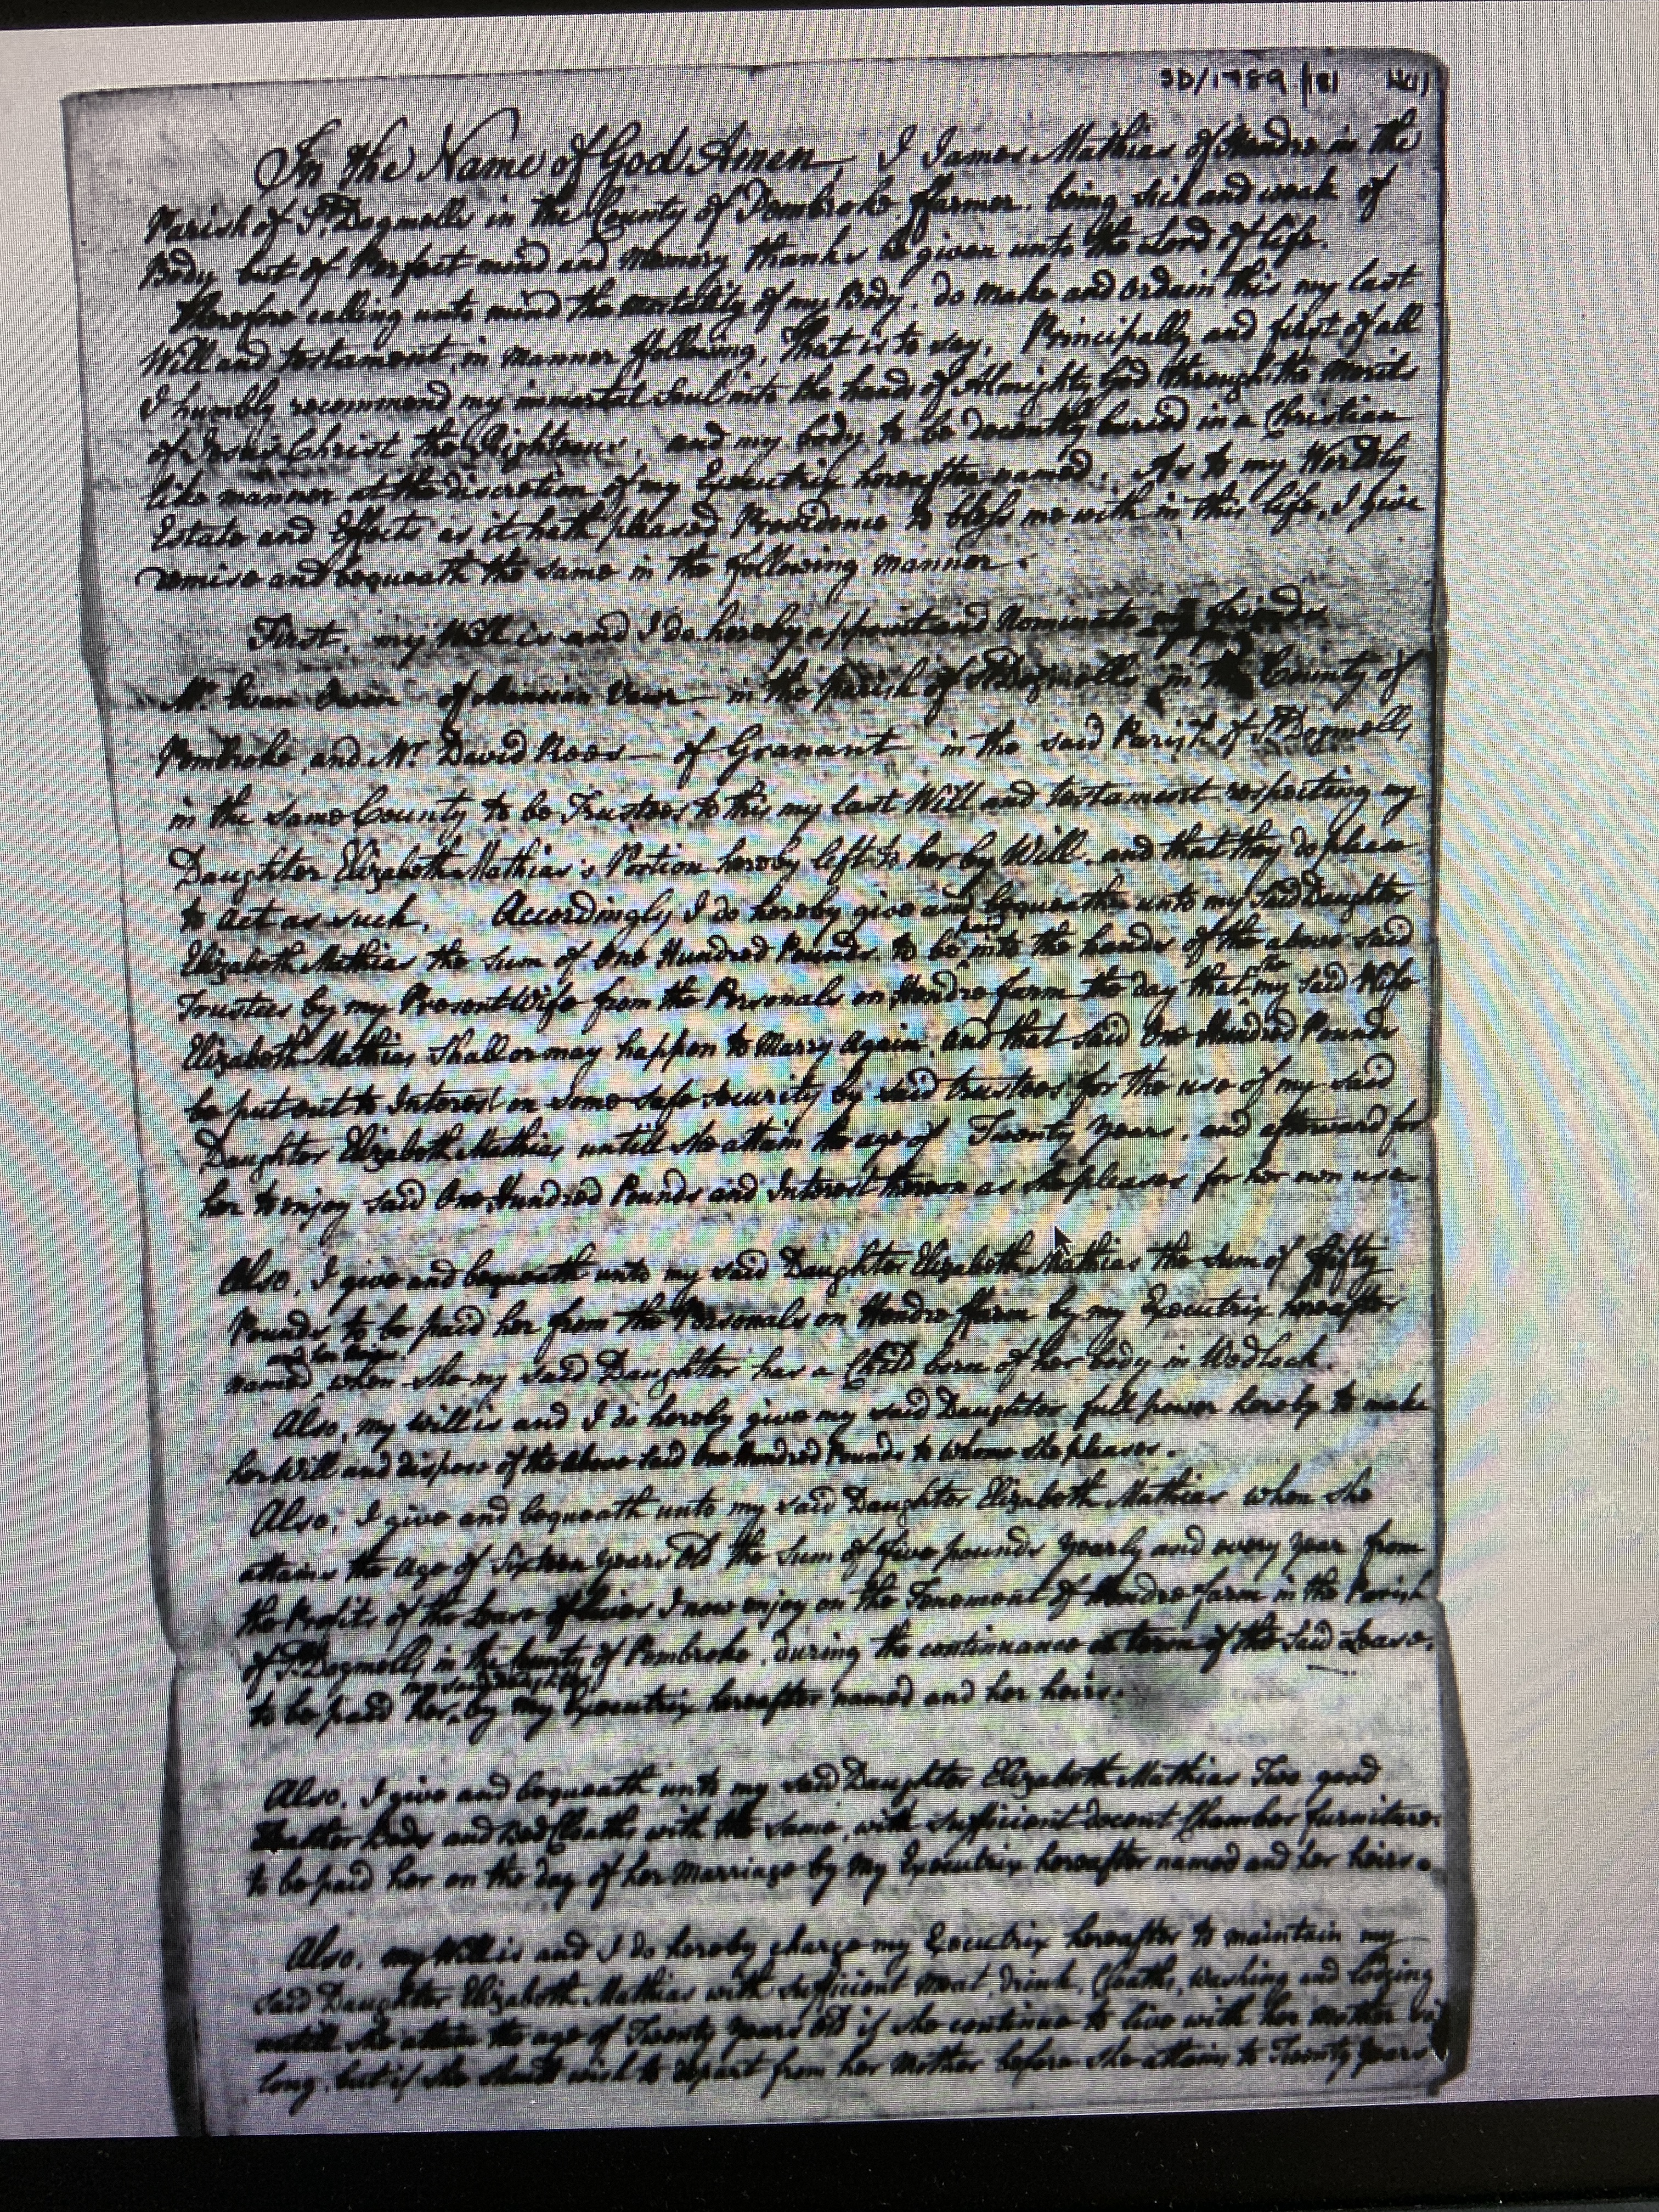 SD/1789/181 W(1)
In the Name of God Amen, I James Mathias of Hendre in the
Parish of St. Dogmells in the County of Pembroke ffarmer. being sick and weak of
Body but of Perfect mind and Memory thanks be given unto the Lord of life.
Therefore calling unto mind the mortality of my Body, do make and ordain this my last
Will and testament, in manner following, That is to say, Principally and first of all
I humbly recommend my immortal Soul into the hands of Almighty God through the Merits
of Jesus Christ the Righteous, and my body to be decently buried in a Christian
like manner at the discretion of my Executrix hereafter named; As to my Wordly
Estate and Effects as it hath pleased Providence to bless me with in this life, I give
remise and bequeath the same in the following manner.
First, my Will is and I do hereby appoint and Nominate my friends
Mr. Evan Owen of Vaur in the parish of St. Dogmells in the County of
Pembroke, and Mr. David Rees of Granant in the said Parish of St. Dogmells
in the same County to be Trustees to this my last Will and testament respecting my
Daughter Elizabeth Mathias's Portion hereby left to her by Will, and that they do please
to act as such. Accordingly I do hereby give and bequeath unto my said Daughter
Elizabeth Mathias the sum of One Hundred Pounds, to be paid into the hands of the above said
Trustees by my Present Wife from the Personals on Hendre farm the day that she my said Wife
Elizabeth Mathias shall or may happen to Marry Again, and that said One Hundred Pounds
be put out to Interest on some safe security by said trustees for the use of my said
Daughter Elizabeth Mathias untill she attain the age of Twenty years, and afterward for
her to enjoy said One Hundred Pounds and Interest thereon as she pleases for her own use.
Also, I give and bequeath unto my said Daughter Elizabeth Mathias the sum of ffifty
Pounds, to be paid her from the Personals on Hendre ffarm by my Executrix hereafter
and her heirs
named, when she my said Daughter has a Child born of her body in Wedlock.
Also, my will is and I do hereby give my said Daughter full power hereby to make
her Will and dispose of the above said One Hundred Pounds to whome she pleases.
Also, I give and bequeath unto my said Daughter Elizabeth Mathias when she
attains the Age of Sixteen years Old the Sum of five pounds yearly and every year from
the Profits of the Lease of lives I now enjoy on the Tenement of Hendre farm in the Parish
of St. Dogmells in the County of Pembroke, during the continuance or term of the said Lease.
my said Daughter
to be paid her, by my Executrix hereafter named and her heirs.
Also, I give and bequeath unto my said Daughter Elizabeth Mathias Two good
Feather Beds and Bed Cloaths with the same, with sufficient decent Chamber furniture
to be paid her on the day of her Marriage by my Executrix hereafter named and her heirs.
Also, my Will is and I do hereby charge my Executrix hereafter to maintain my
said Daughter Elizabeth Mathias with sufficient meat, Drink, Cloaths, washing and lodging
untill she attain the age of Twenty years Old if she continue to live with her mother so
long, but if she should wish to depart from her Mother before she attains to Twenty years